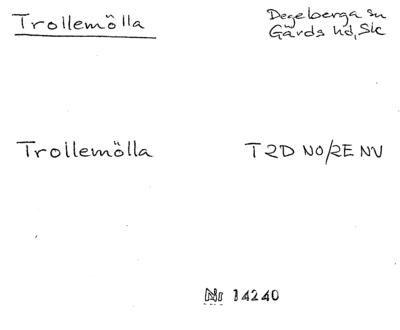 Trollemölla
Degeberga sn
Gärds hd, Sk
Trollemölla
T2D NO/2E NV
Nr 14240